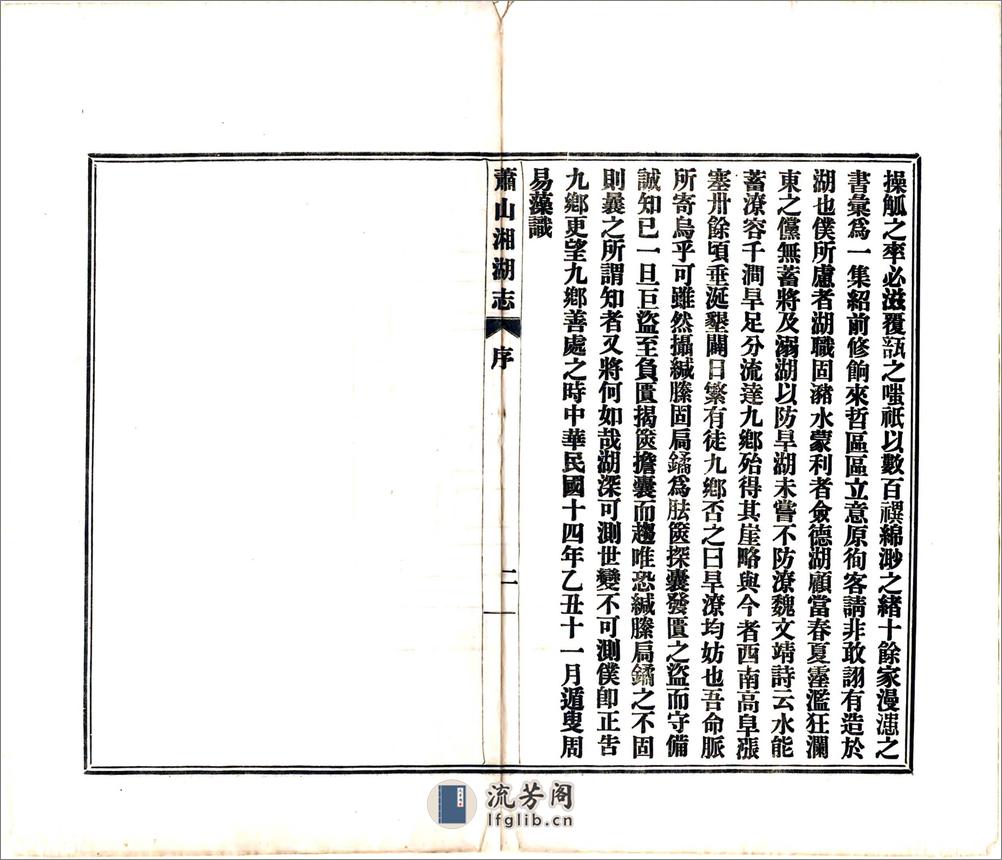 操觚之率必滋覆瓿之嗤祇以數百禩綿渺之緒十餘家漫漶之
書彙爲一集紹前修餉來哲區區立意原徇客請非敢詡有造於
湖也僕所慮者湖職固瀦水蒙利者僉德湖顧當春夏霪濫狂瀾
東之儻無蓄將及溺湖以防旱湖未嘗不防潦魏文靖詩云水能
蓄潦容千澗旱足分流達九鄉殆得其崖略與今者西南高阜漲
塞卅餘頃垂涎墾闢日繁有徒九鄉否之曰旱潦均妨也吾命脈
所寄烏乎可雖然攝緘縢固扃鐍爲胠篋探囊發匱之盜而守備
誠知已一旦巨盜至負匱揭篋擔囊而趨唯恐緘縢扃鐍之不固
則曩之所謂知者又將何如哉湖深可測世變不可測僕卽正告
九鄉更望九鄉善處之時中華民國十四年乙丑十一月遁叟周
易藻識
蕭山湘湖志 序 二
流芳阁
lfglib.cn